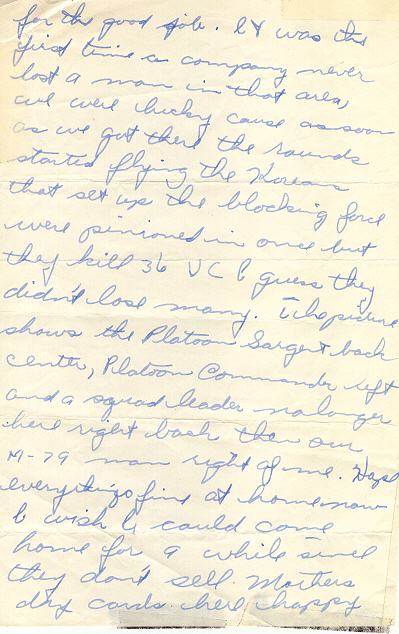 for the good job. It was the
first time a company never
lost a man in that area,
we were lucky cause as soon
as we got there the rounds
started flying the Koreans
that set up the blocking force
were pinioned in once but
they kill 36 VC I guess they
didn't lose many. The picture
shows the Platoon Sargent back
center, Platoon Commander left
and a squad leader no longer
here right back then our
M-79 man right of me. Hope
everythings fine at home now
I wish I could come
home for a while since
they don't sell Mothers
day cards here happy